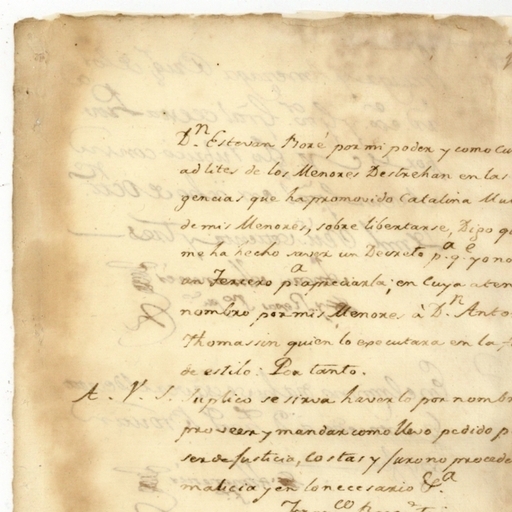 Dⁿ Estevan Boré por mi poder y como Cu
ad lites de los Menores Destrehan en las
gencias que ha promovido Catalina Mu
de mis Menores, sobre libertarse, Digo q
me ha hecho saver un Decreto pᵃ qᵉ yo no
un Tercero pᵃ apreciarla; en Cuya aten
nombro por mis Menores à Dⁿ Anto
Thomassin quien lo executara en la f
de estilo: Por tanto.
A. V. S. Suplico se sirva haverlo por nombr
proveer y mandar como llevo pedido p
ser de Justicia, Costas y Juro no proced
malicia y en lo necesario &ᵃ